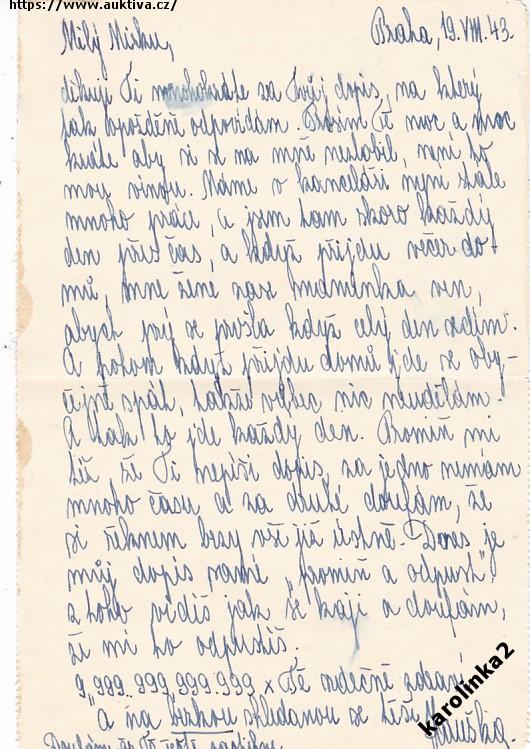 https://www.auktiva.cz/
Milý Mirku, Praha, 19.VIII.43.
děkuji Ti mnohokráte za Tvůj dopis, na který
tak opožděně odpovídám. Prosím Tě moc a moc
kráte aby si se na mně nezlobil, není to
mou vinou. Máme v kanceláři nyní stále
mnoho práce, a jsem tam skoro každý
den přes čas, a když přijdu večer do-
mů, mne žene zase maminka ven,
abych prý se prošla když celý den sedím.
A potom když přijdu domů jde se oby-
čejně spát, takže vůbec nic neudělám.
A tak to jde každý den. Promiň mi
též že Ti nepíši dopis, za jedno nemám
mnoho času a za druhé doufám, že
si řeknem brzy vše již ústně. Dnes je
můj dopis samé "promiň a odpusť"
z toho vidíš jak se kaji a doufám,
že mi to odpustíš.
9,999.999,999.999 x Tě srdečně zdraví
a na brzkou shledanou se těší
karolinka2